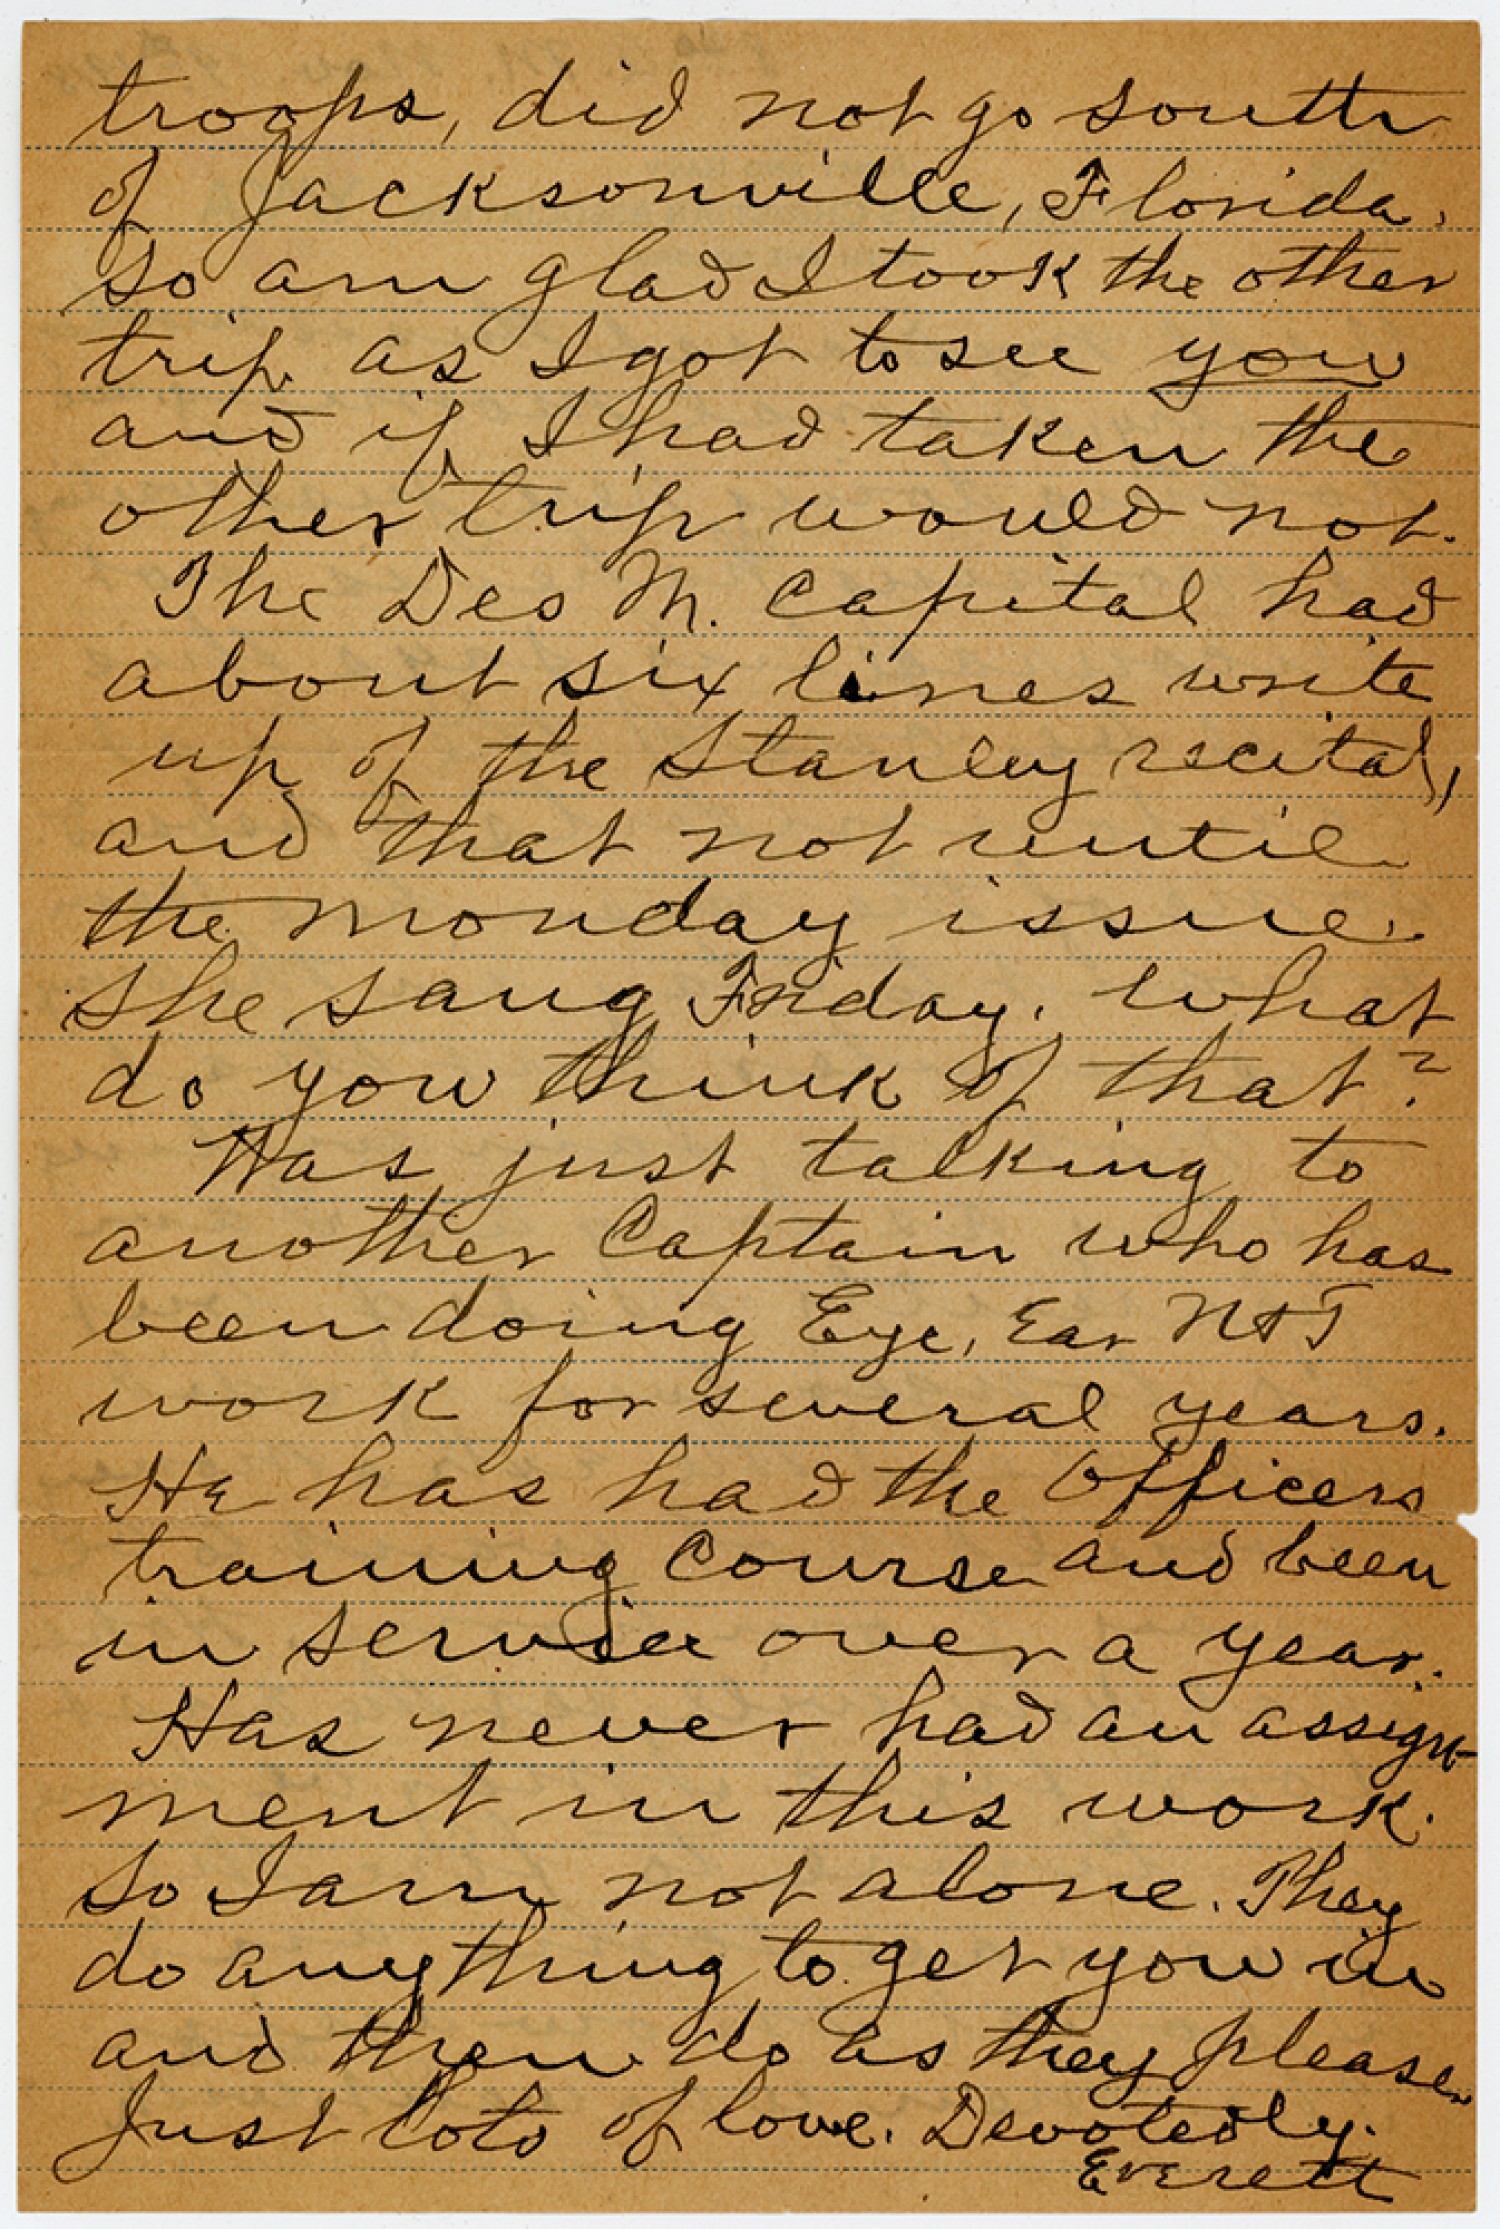 troops, did not go south
of Jacksonville, Florida.
So am glad I took the other
trip as I got to see you
and if I had taken the
other trip would not.
The Des M. Capital had
about six lines write
up of the Stanley recital,
and that not until
the Monday issue.
She sang Friday. What
do you think of that?
Was just talking to
another Captain who has
been doing Eye, Ear N & T
work for several years.
He has had the Officers
training Course and been
in service over a year.
Has never had an assign-
ment in this work.
So I am not alone. They
do anything to get you in
and then do as they please.
Just lots of love. Devotedly.
Everett